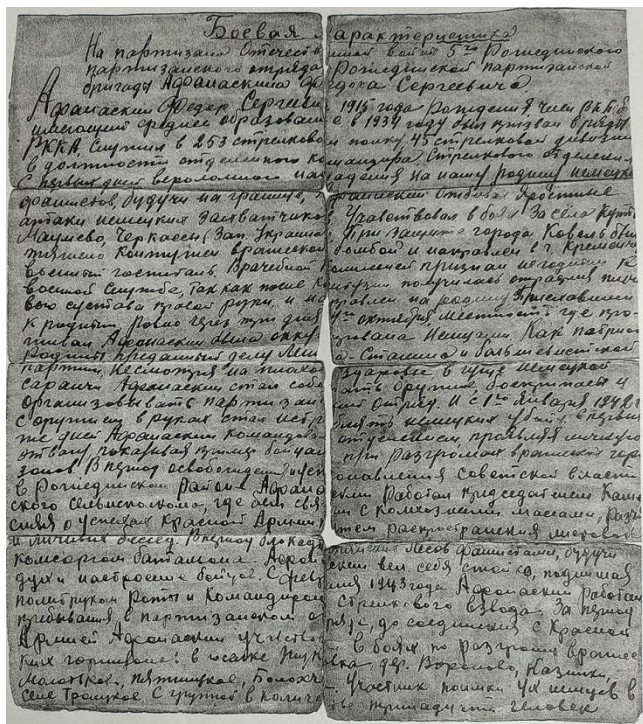 Боевая характеристика
На партизана Отечеств нной войны 5го Рогнединского
партизанского отряда Рогнединской партизанской
бригады Афанаскина Фе дора Сергеевича.
Афанаскин Федор Сергееви 1915 года Рождения член В.К.П.(б)
имеющий среднее образован е в 1939 году был призван в ряды
РККА. Служил в 253 стрелково м полку 45 стрелковой дивизии
в должности отделенного ко мандира Стрелкового отделения
С первых дней вероломного нап адения на нашу родину немецко
фашистов, будучи на границе, Афанаскин отбивал Яростные
атаки немецких захватчиков. Участвовал в боях За села
Мацлево, Черкассы (Зап. Украина При защите города Ковель был
тяжело контужен вражеской бомбой и направлен в г. Кременчуг
военный госпиталь. Врачебной комиссией признан негодным к
военной службе, так как после ко нтузии получилась операция плече
вого сустава правой руки, и на правлен на родину
к родителям Ровно через три дня октября, местность где про
живал Афанаскин была окку пирована Немцами. Как патриот
Родины преданный делу Лени на-Сталина и большевистской
партии, Несмотря на плохое здоровье в гуще немецкой
саранчи Афанаскин стал соби рать оружие боеприпасы и
организовывать партизанс кий отряд. И с 1го Января 1942 г.
с оружием в руках стал истреб лять немецких убийц. С первых
же дней Афанаскин командовал отделением, проявляя
отвагу, показывая пример бойцам при Разгроме вражеских гарни
зонов. В период освобождения и уст ановления советской власти
в Рогнединском Районе Афана скин Работал председателем
ского сельисполкома, где вел свя зь с Колхозными массами, разъя
сняя о успехах Красной Армии путем распространения листовок
и личных бесед. В период блокады лесов фашистами, будучи
комиссаром батальона. Афанас кин вел себя стойко, поднимая
дух и настроение бойцов. С февр аля 1943 года Афанаскин Работал
политруком Роты и Командиром Стрелкового взвода. За период
пребывания в партизанском от ряде, до соединения с Красной
Армией Афанаскин участвовал в боях по разгрому вражес
ких гарнизонов в поселке дер. Вороново,
Молотьков, пятницкое, Участник поимки 4х немцев в
селе Троицкое. С группой в количес тве тринадцати человек